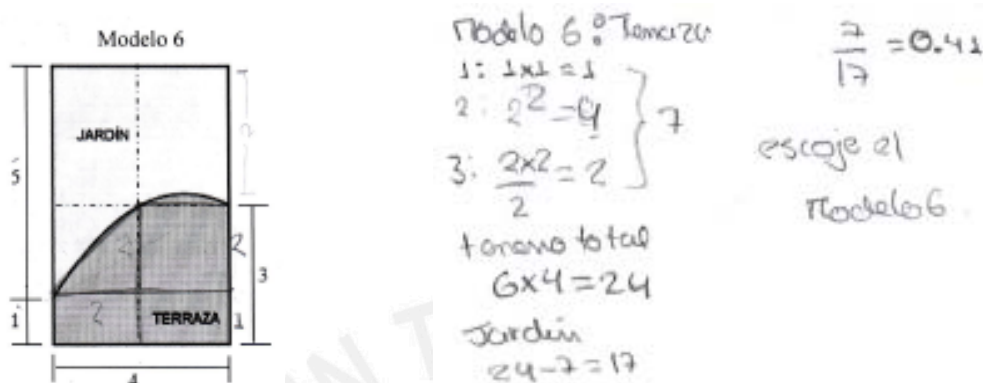 Modelo 6
JARDÍN
TERRAZA
5
1
2
2
2
3
1
4
Modelo 6: Terraza
1: 1x1 = 1
2: 2² = 4
3: 2x2/2 = 2
7
terreno total
6x4 = 24
Jardín
24-7 = 17
7/17 = 0.41
escoje el
Modelo 6